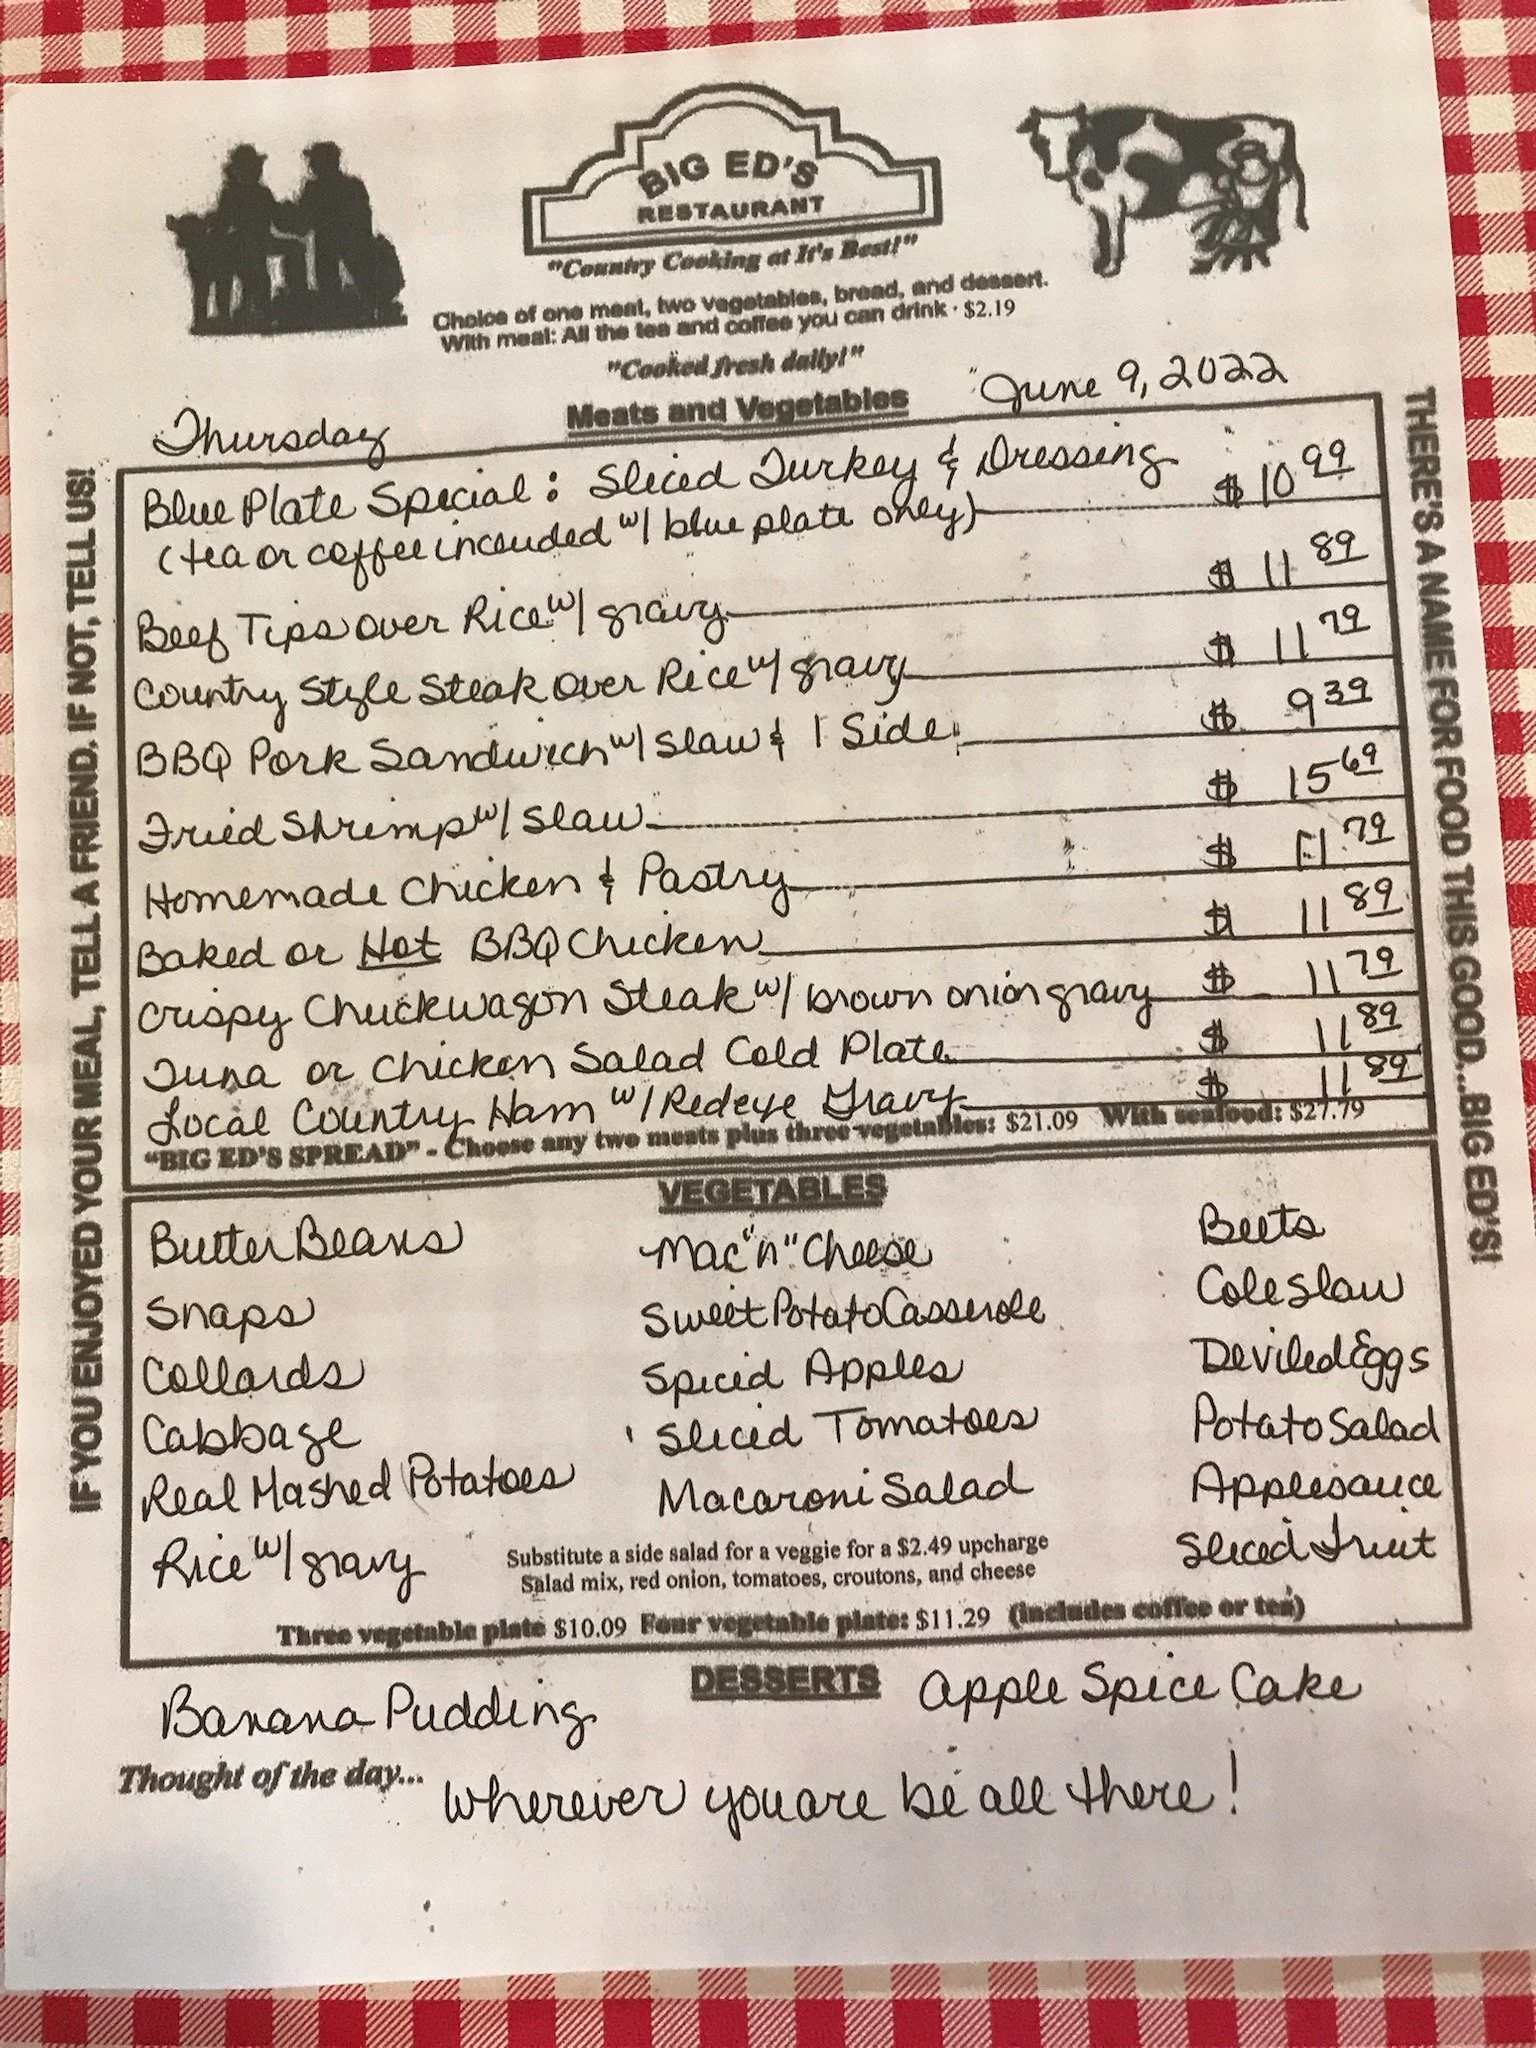 BIG ED'S
RESTAURANT
"Country Cooking at It's Best!"
Choice of one meat, two vegetables, bread, and dessert.
With meal: All the tea and coffee you can drink · $2.19
"Cooked fresh daily!"
Thursday
Meats and Vegetables
June 9, 2022
IF YOU ENJOYED YOUR MEAL, TELL A FRIEND. IF NOT, TELL US!
THERE'S A NAME FOR FOOD THIS GOOD...BIG ED'S!
Blue Plate Special: Sliced Turkey & Dressing
(tea or coffee included w/ blue plate only) $10.99
Beef Tips over Rice w/ gravy $11.89
Country Style Steak over Rice w/ gravy $11.79
BBQ Pork Sandwich w/ Slaw & 1 Side $9.39
Fried Shrimp w/ Slaw $15.69
Homemade Chicken & Pastry $11.79
Baked or Hot BBQ Chicken $11.89
Crispy Chuckwagon Steak w/ brown onion gravy $11.79
Tuna or Chicken Salad Cold Plate $11.89
Local Country Ham w/ Redeye Gravy $11.89
"BIG ED'S SPREAD" - Choose any two meats plus three vegetables: $21.09 With seafood: $27.79
VEGETABLES
Butter Beans
Snaps
Collards
Cabbage
Real Mashed Potatoes
Rice w/ gravy
Mac "n" Cheese
Sweet Potato Casserole
Spiced Apples
Sliced Tomatoes
Macaroni Salad
Beets
Cole Slaw
Deviled Eggs
Potato Salad
Applesauce
Sliced Fruit
Substitute a side salad for a veggie for a $2.49 upcharge
Salad mix, red onion, tomatoes, croutons, and cheese
Three vegetable plate $10.09 Four vegetable plate: $11.29 (includes coffee or tea)
DESSERTS
Banana Pudding
Apple Spice Cake
Thought of the day... Wherever you are be all there!